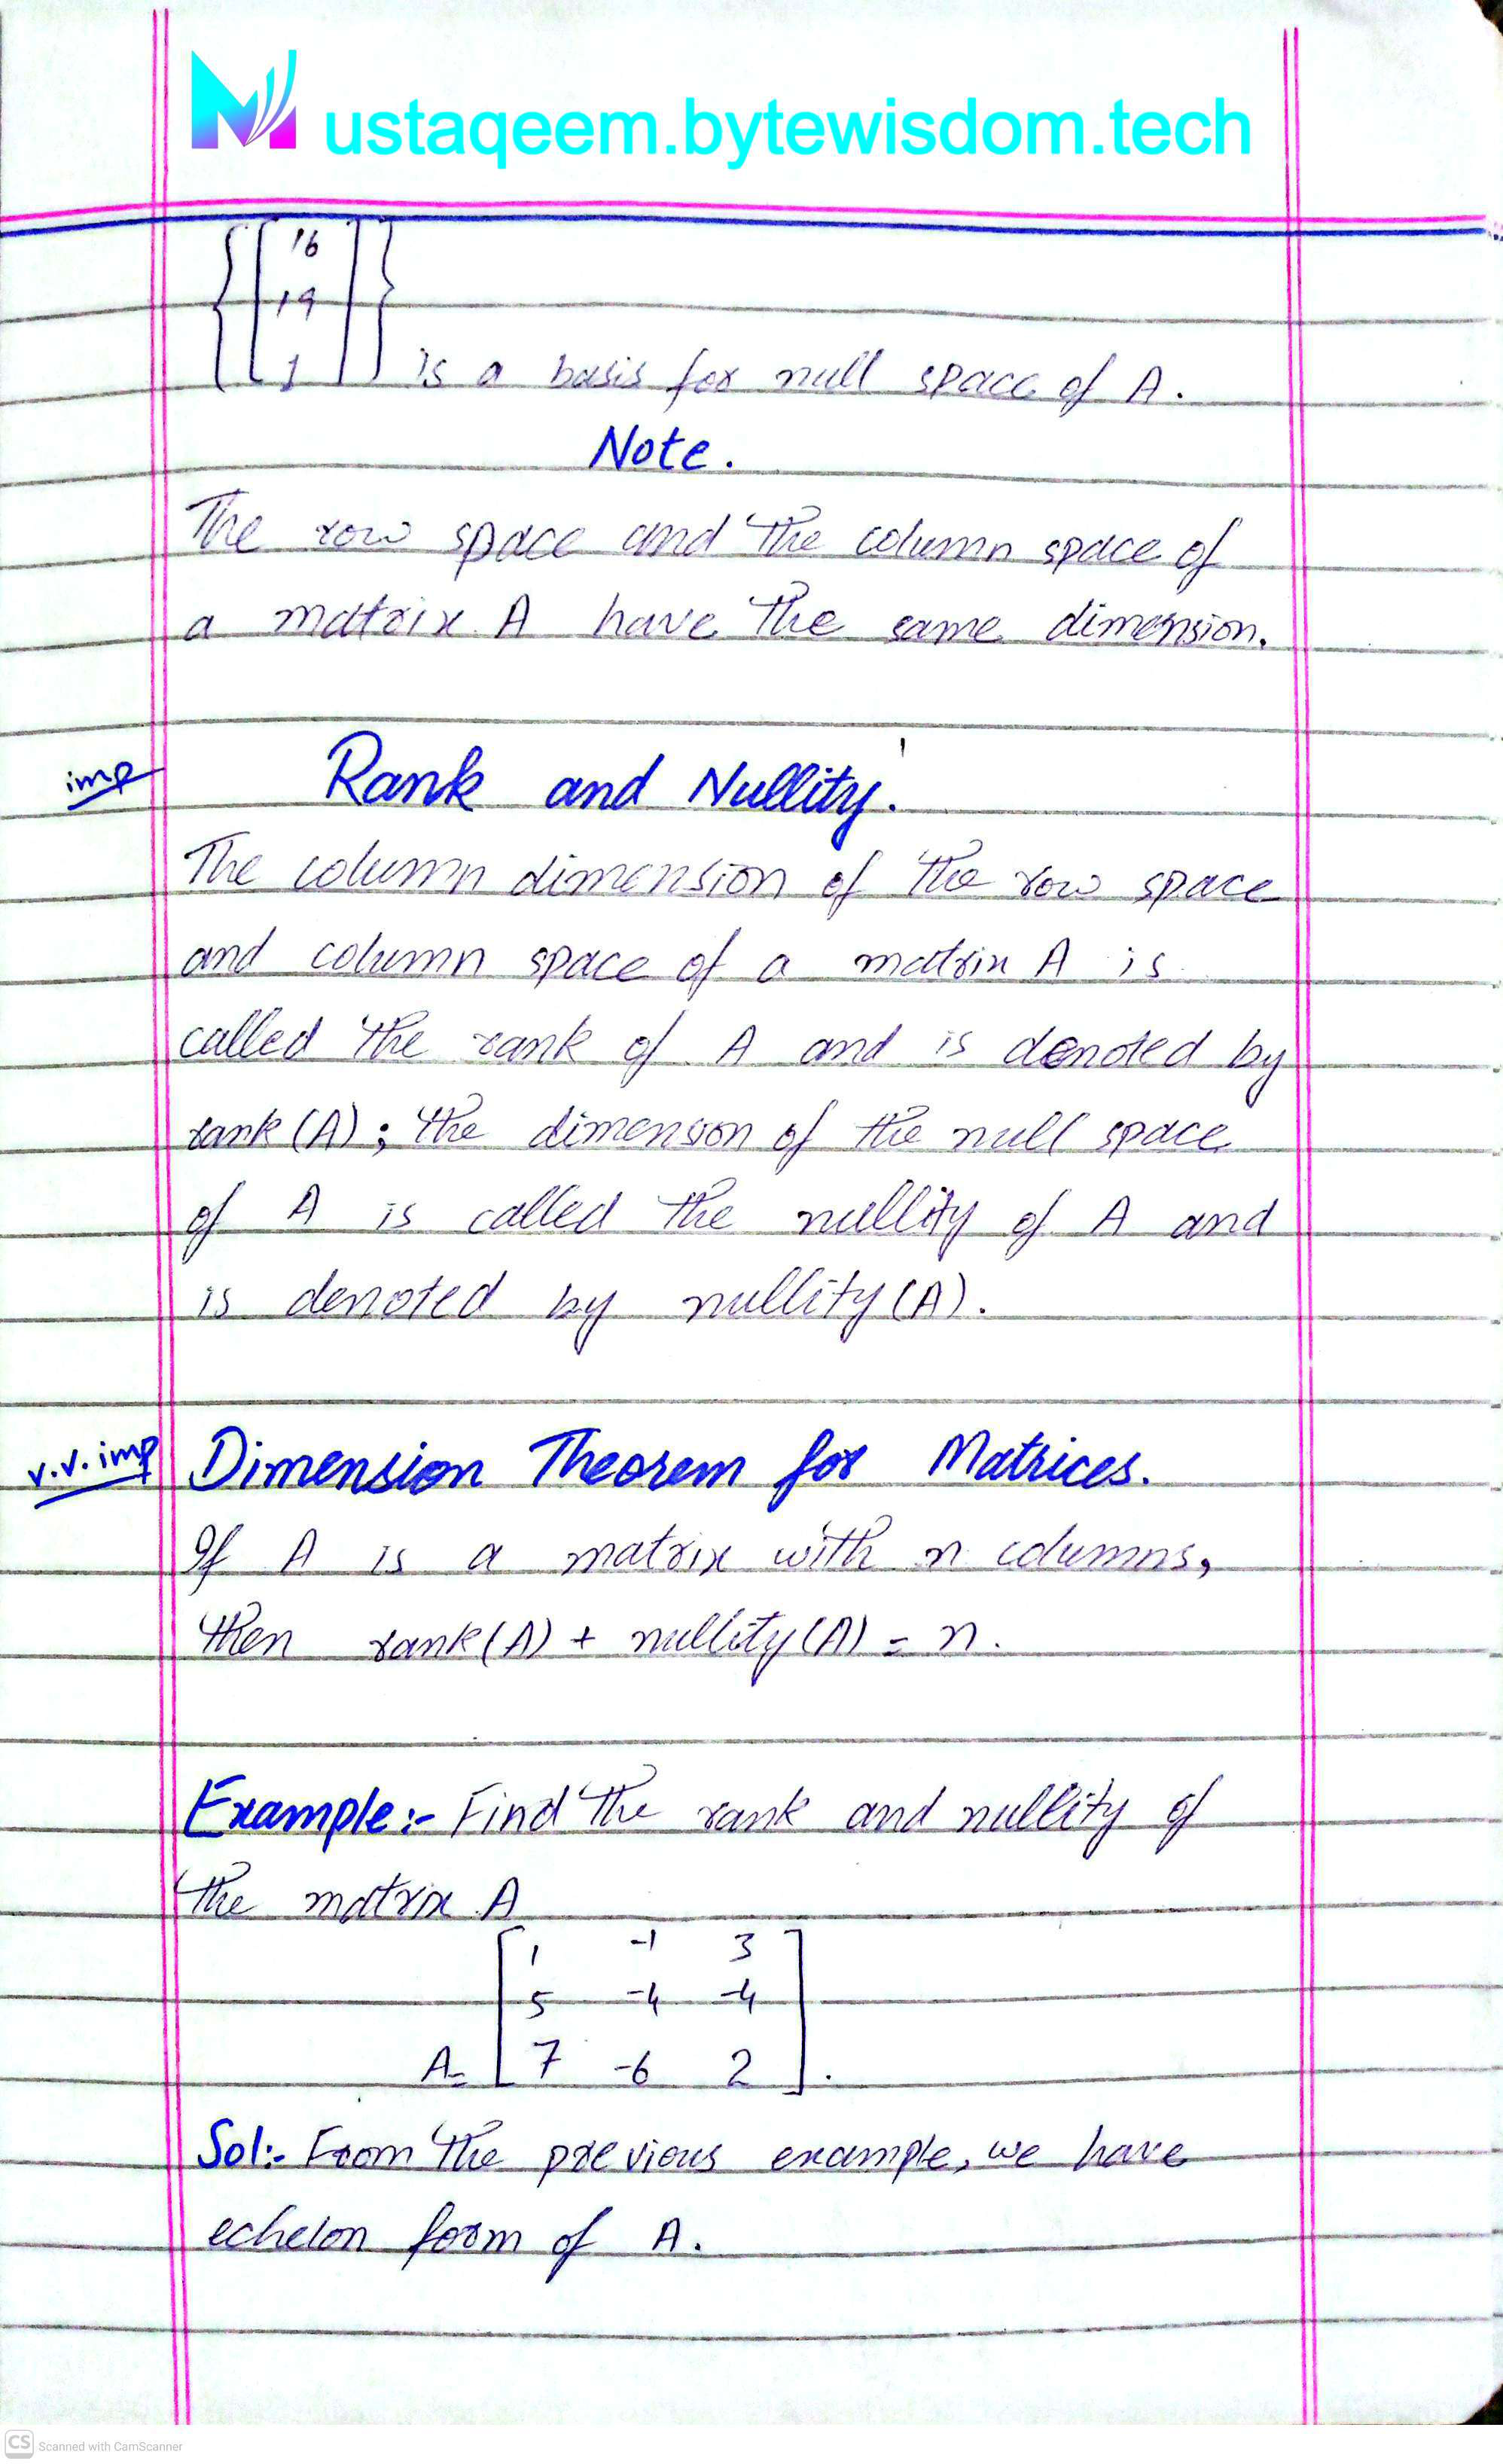 Mustaqeem.bytewisdom.tech
{[16
19
1]} is a basis for null space of A.
Note.
The row space and the column space of
a matrix A have the same dimension.
imp Rank and Nullity.
The column dimension of the row space
and column space of a matrix A is
called the rank of A and is denoted by
rank (A); the dimension of the null space
of A is called the nullity of A and
is denoted by nullity (A).
v.v.imp Dimension Theorem for Matrices.
If A is a matrix with n columns,
then rank (A) + nullity (A) = n.
Example:- Find the rank and nullity of
the matrix A
[1 -1 3
5 -4 -4
A= 7 -6 2].
Sol:- From the previous example, we have
echelon form of A.
CS Scanned with CamScanner